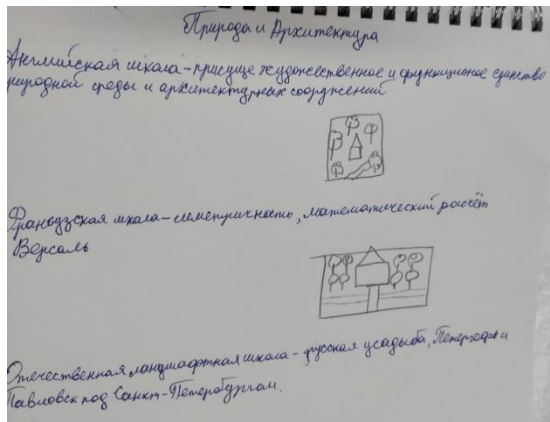 Природа и Архитектура
Английская школа - присуще художественное и функционое единство
природной среды и архитектурных сооружений
Французская школа - симетричность, математический расчёт
Версаль
Отечественная ландшафтная школа - русская усадьба, Петергоф и
Павловск под Санкт-Петербургом.